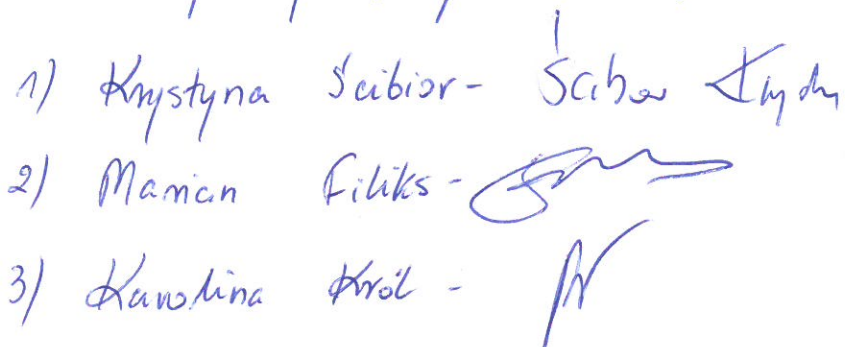 1) Krystyna Ścibior - Ścibior
2) Marian Filiks -
3) Karolina Król -